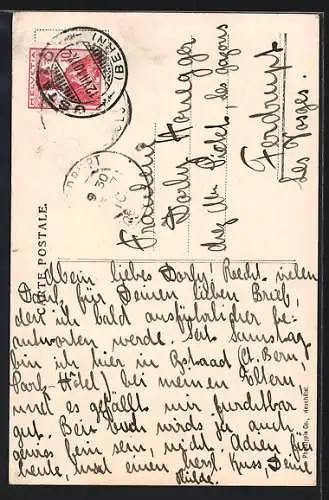 HELVETIA
10
GSTAAD
(BERN)
9 30
CARTE POSTALE.
Fräulein
Dorly Honegger
chez Mme Pidet, les gazons
Ferdrupt
Les Vosges.
Mein liebes Dorly! Recht vielen
Dank für Deinen lieben Brief,
den ich bald ausführlicher be-
antworten werde. Seit Samstag
bin ich hier in Gstaad (Ct. Bern,
Park-Hôtel) bei meinen Eltern,
und es gefällt mir furchtbar
gut. Bei Euch wird's ja auch
fein sein, nicht. Adieu für
heute, und einen herzl. Kuss, Deine
Hilde.
Co., Neuchâtel